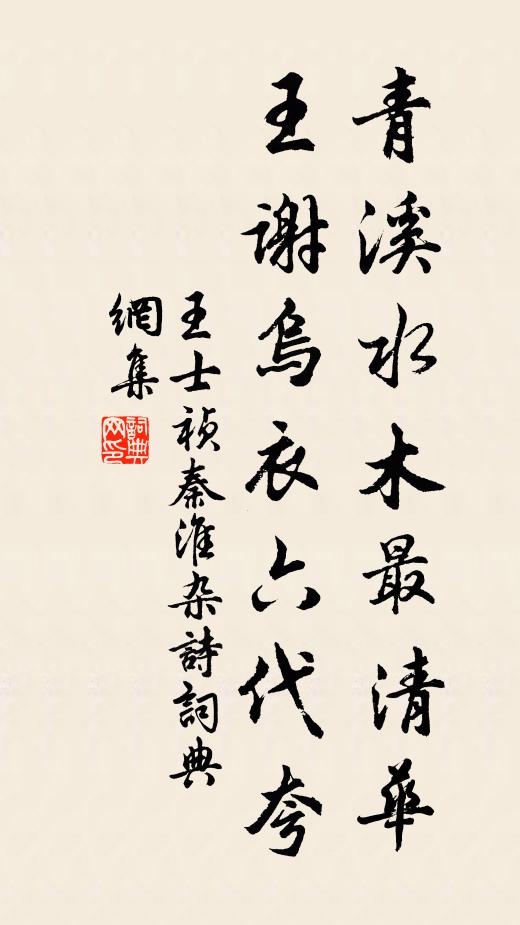 青溪水木最清華
王謝烏衣六代夸
王士禎秦淮杂詩詞典
網集
詞典網印